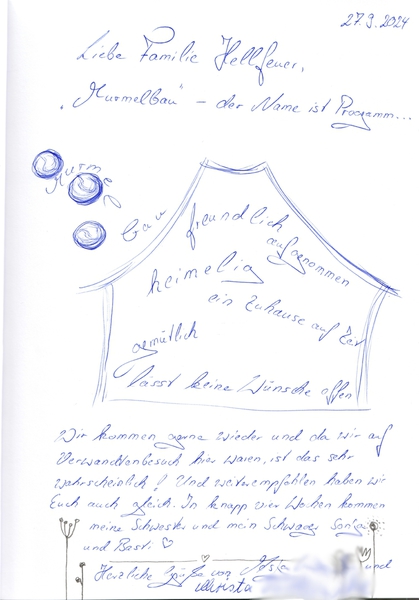 27.9.2024
Liebe Familie Hellfeuer,
„Murmelbau" – der Name ist Programm...
Murmel
bau
freundlich
aufgenommen
heimelig
ein Zuhause auf Zeit
gemütlich
lässt keine Wünsche offen
Wir kommen gerne wieder und da wir auf
Verwandtenbesuch hier waren, ist das sehr
wahrscheinlich! Und weiterempfohlen haben wir
Euch auch gleich. In knapp vier Wochen kommen
meine Schwester und mein Schwager
und Basti ♡
Herzliche Grüße von und